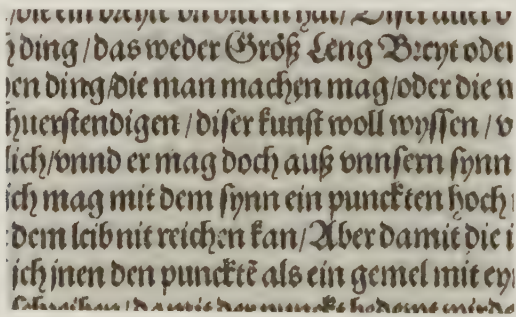 ding / das weder Größ Leng Breyt oder
en ding / die man machen mag / oder die
huerstendigen / diser kunst woll wyssen / v
lich / vnnd er mag doch auß vnnsern synn
ich mag mit dem synn ein punckten hoch
dem leib nit reichen kan / Aber damit die i
ich jnen den puncktē als ein gemel mit ey